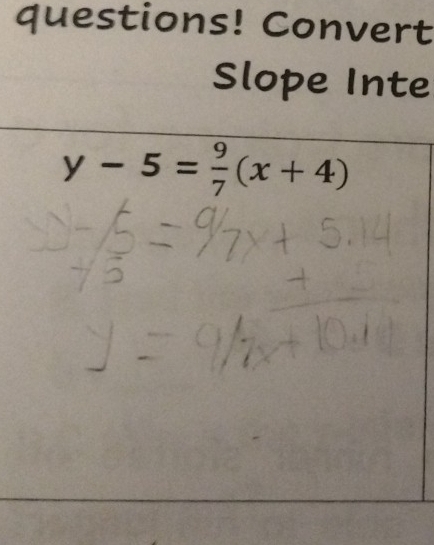 questions! Convert
Slope Inte
y - 5 = 9/7 (x + 4)
y - 5 = 9/7x + 5.14
+5 +
y = 9/7x + 10.14